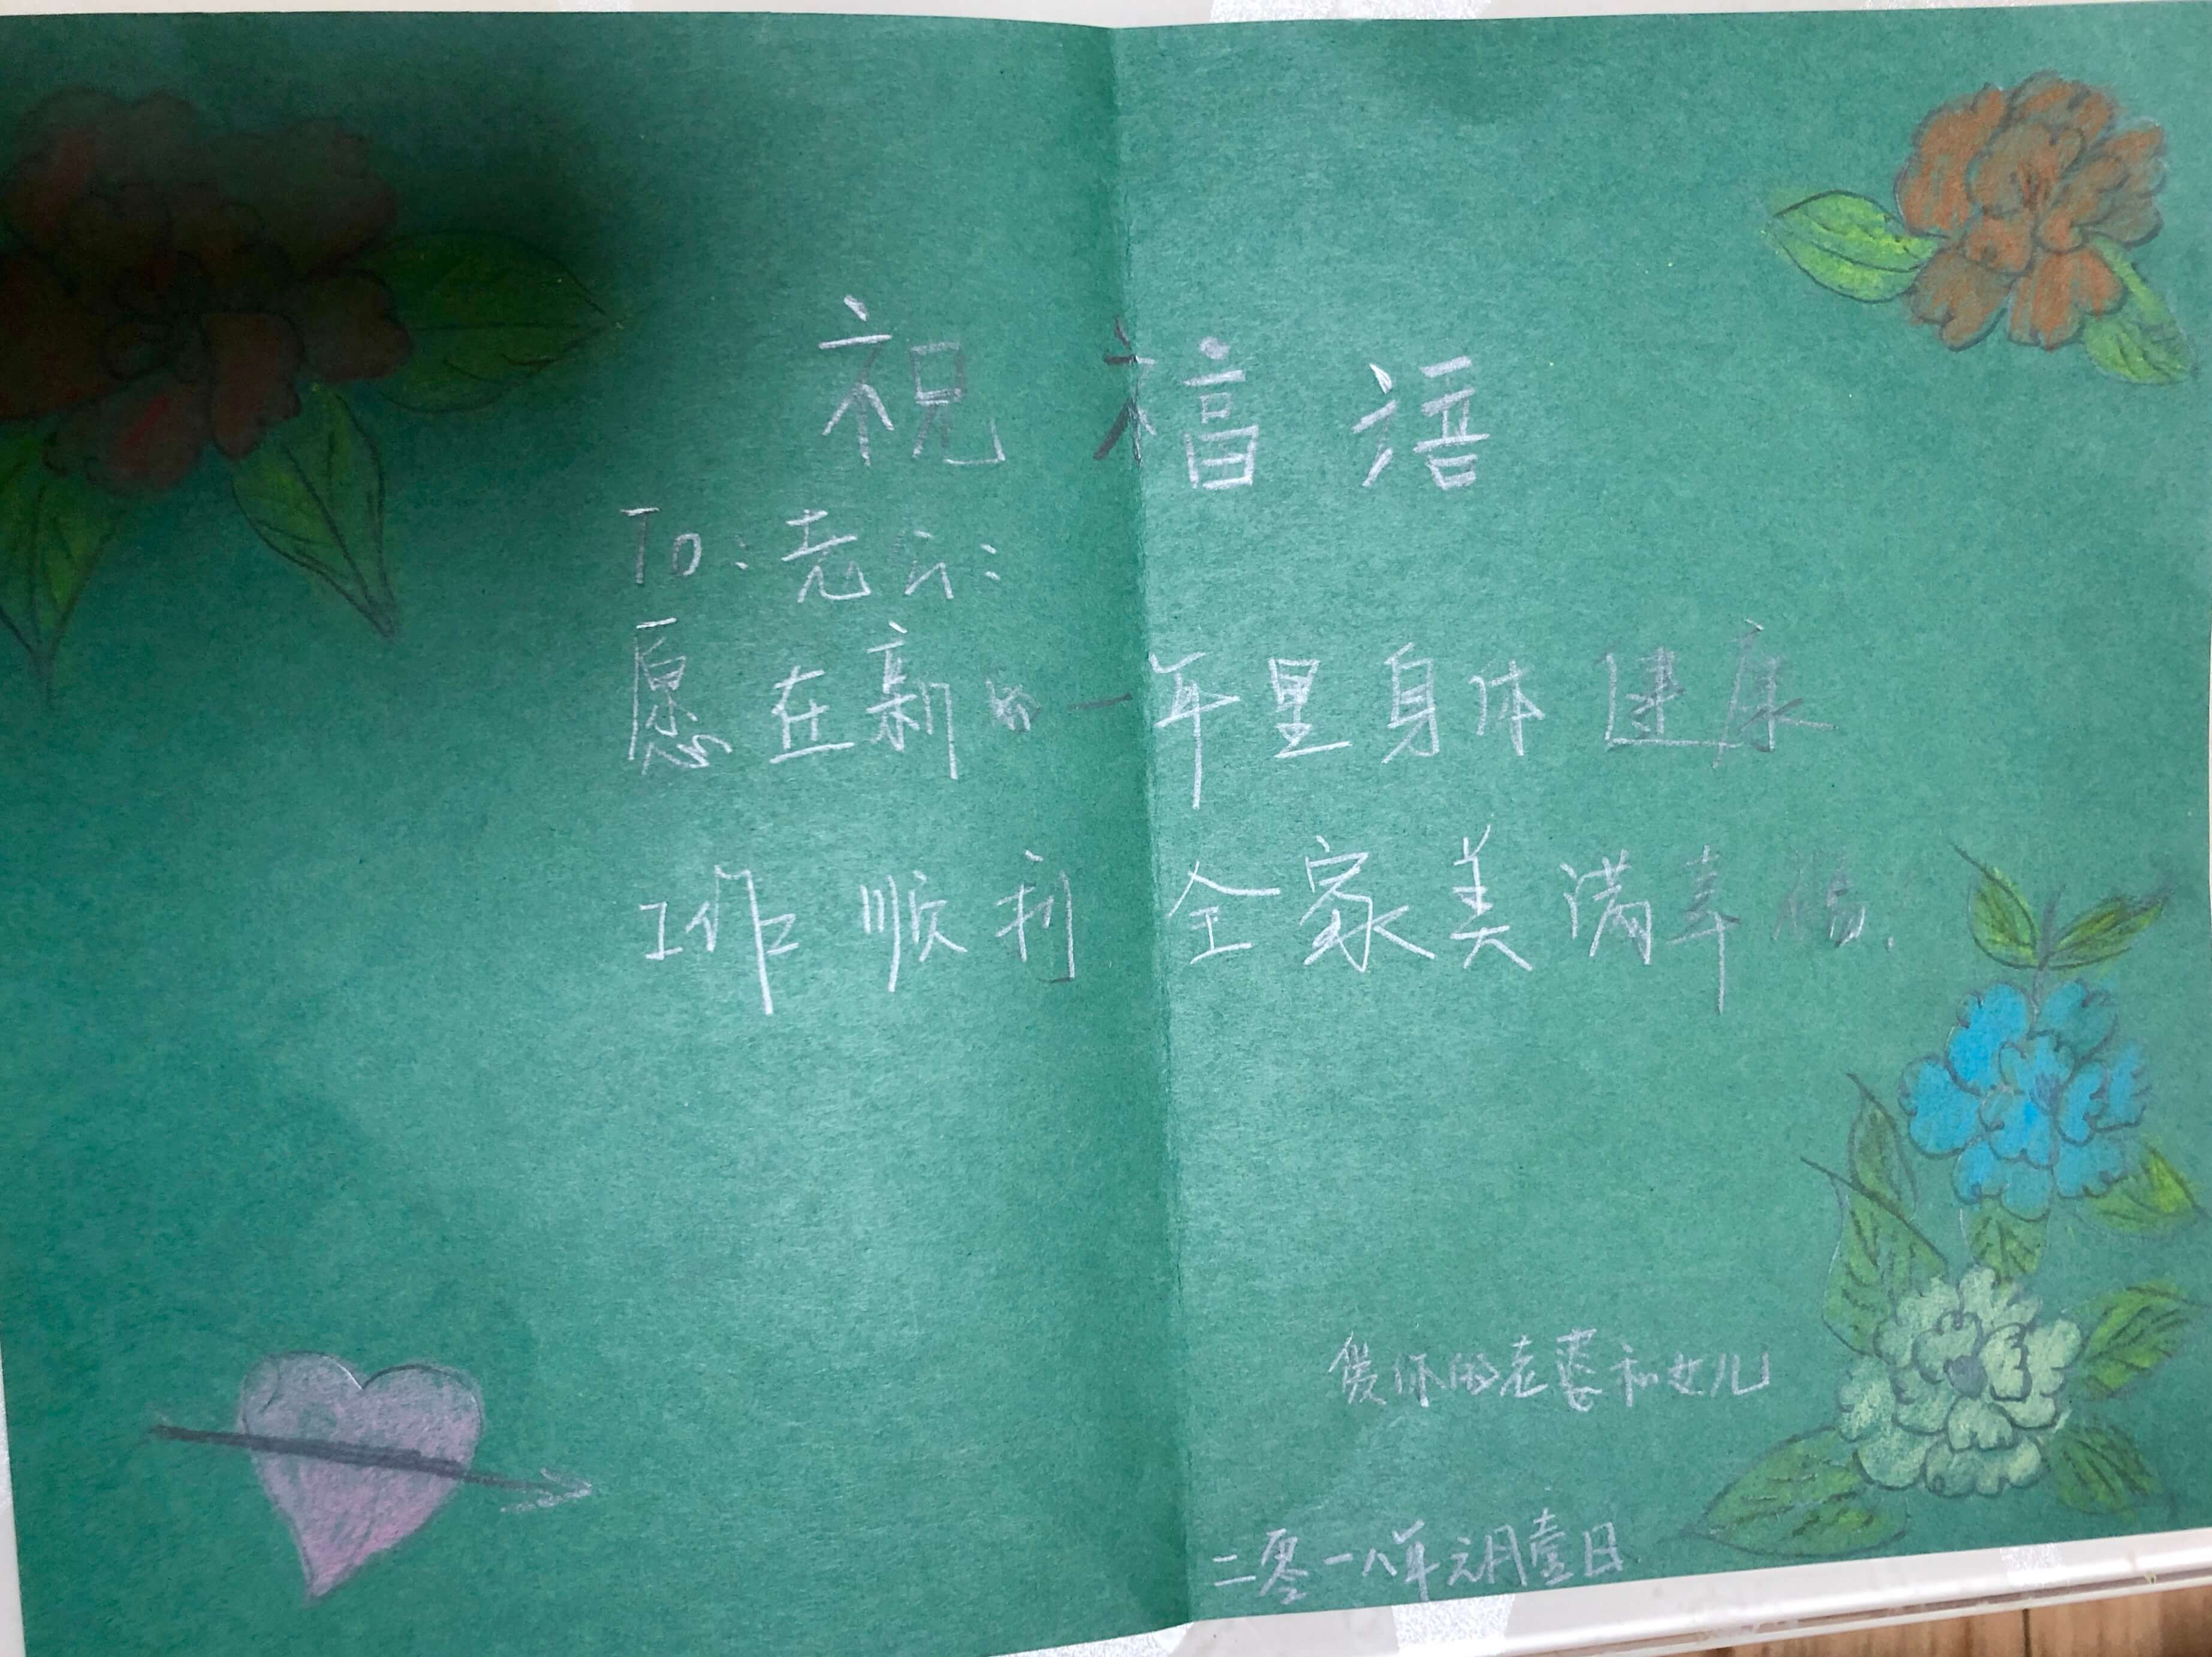 祝福语
To:老公:
愿在新的一年里身体健康
工作顺利 全家美满幸福.
爱你的老婆和女儿
二零一八年元月壹日